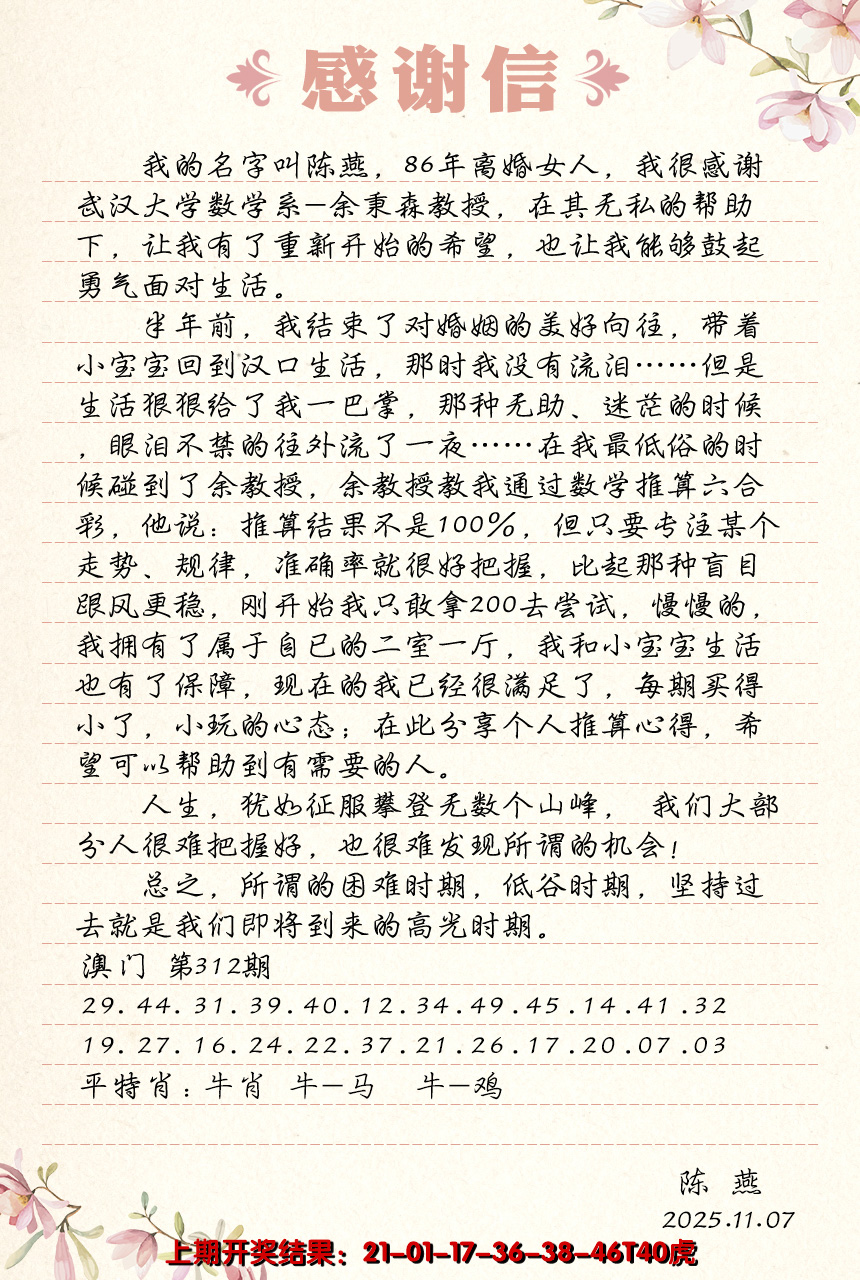 感谢信
我的名字叫陈燕，86年离婚女人，我很感谢
武汉大学数学系—余秉森教授，在其无私的帮助
下，让我有了重新开始的希望，也让我能够鼓起
勇气面对生活。
半年前，我结束了对婚姻的美好向往，带着
小宝宝回到汉口生活，那时我没有流泪……但是
生活狠狠给了我一巴掌，那种无助、迷茫的时候
，眼泪不禁的往外流了一夜……在我最低俗的时
候碰到了余教授，余教授教我通过数学推算六合
彩，他说：推算结果不是100%，但只要专注某个
走势、规律，准确率就很好把握，比起那种盲目
跟风更稳，刚开始我只敢拿200去尝试，慢慢的，
我拥有了属于自已的二室一厅，我和小宝宝生活
也有了保障，现在的我已经很满足了，每期买得
小了，小玩的心态；在此分享个人推算心得，希
望可以帮助到有需要的人。
人生，犹如征服攀登无数个山峰， 我们大部
分人很难把握好，也很难发现所谓的机会！
总之，所谓的困难时期，低谷时期，坚持过
去就是我们即将到来的高光时期。
澳门 第312期
29.44.31.39.40.12.34.49.45.14.41.32
19.27.16.24.22.37.21.26.17.20.07.03
平特肖：牛肖 牛—马 牛—鸡
陈 燕
2025.11.07
上期开奖结果：21-01-17-36-38-46T40虎